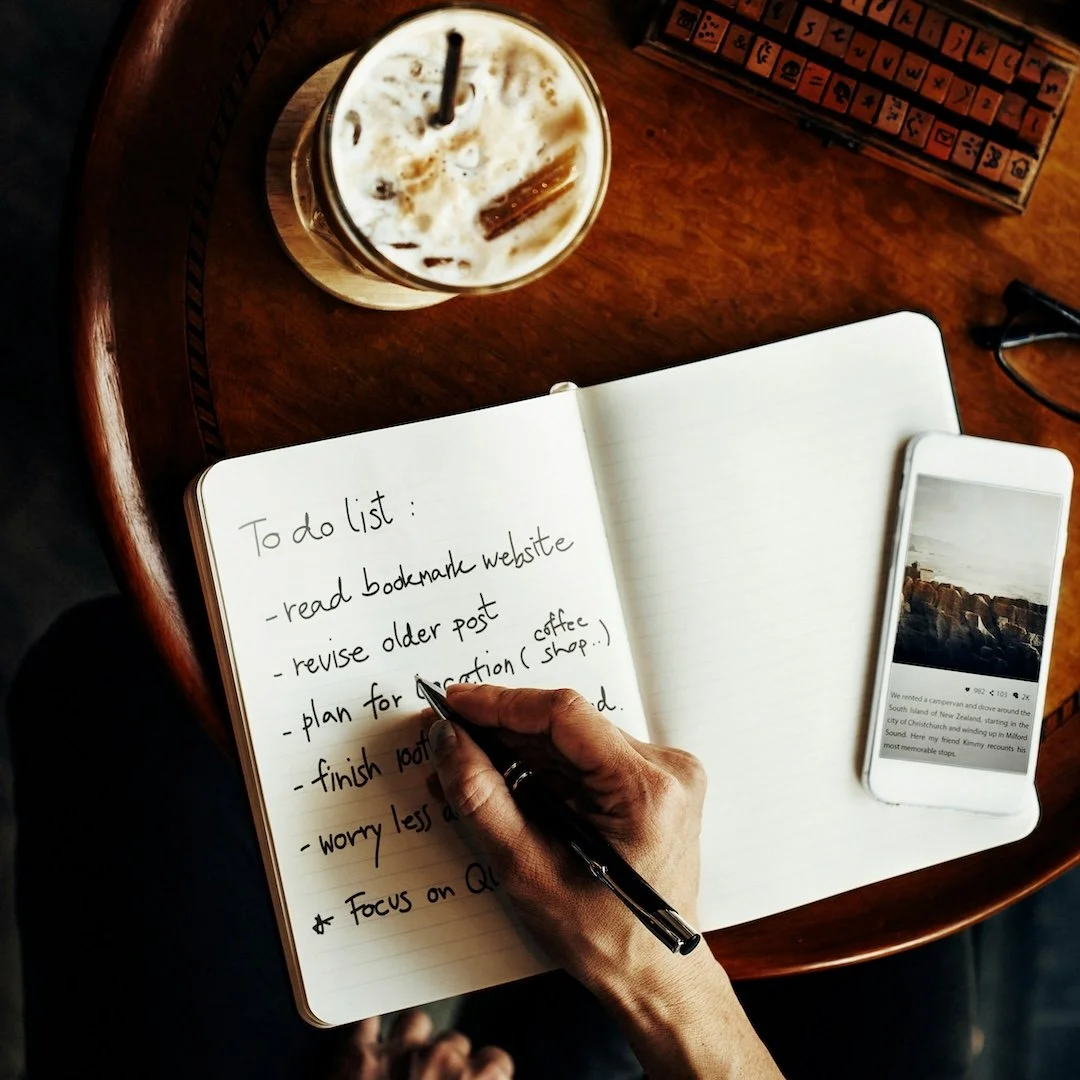 To do list :
- read bookmark website
- revise older post
- plan for location ( coffee shop.. )
- finish
- worry less
* Focus on
982 103 2K
We rented a campervan and drove around the
South Island of New Zealand, starting in the
city of Christchurch and winding up in Milford
Sound. Here my friend Kimmy recounts his
most memorable stops.
s t u v w x y z